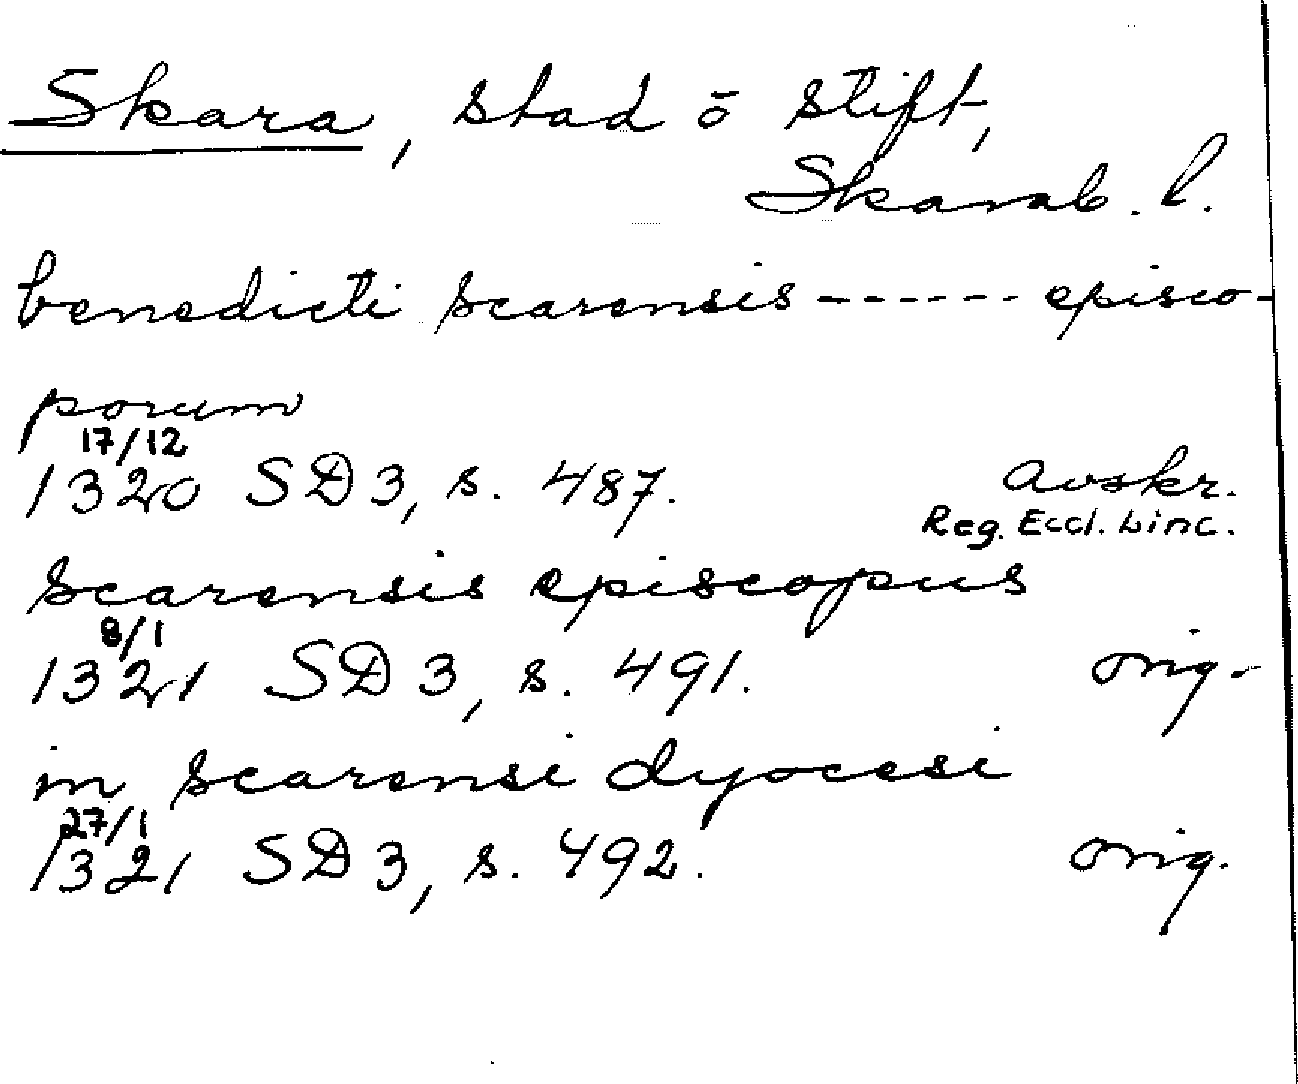 Skara, stad ō stift,
Skarab. l.
benedicti scarensis ------ episco-
porum
17/12
1320 SD 3, s. 487. Avskr.
Reg. Eccl. Linc.
scarensis episcopus
8/1
1321 SD 3, s. 491. orig.
in scarensi dyocesi
27/1
1321 SD 3, s. 492. orig.